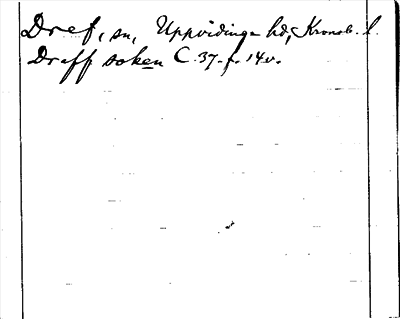 Dref, sn, Uppvidinge hd, Kronob. l.
Dreff soken C. 37. f. 14v.